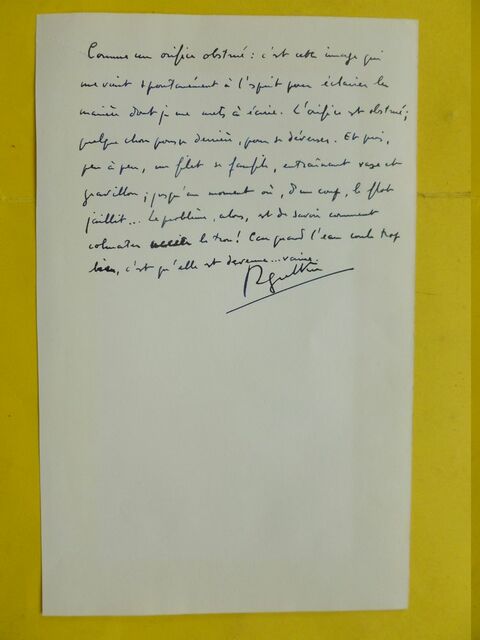 Comme un orifice obstrué : c'est cette image qui
me vient spontanément à l'esprit pour éclairer la
manière dont je me mets à écrire. L'orifice est obstrué ;
quelque chose pousse derrière, pour se déverser. Et puis,
peu à peu, un filet se faufile, entraînant vase et
gravillon ; jusqu'au moment où, d'un coup, le flot
jaillit... Le problème, alors, est de savoir comment
colmater le trou ! Car quand l'eau coule trop
bien, c'est qu'elle est devenue... vaine.